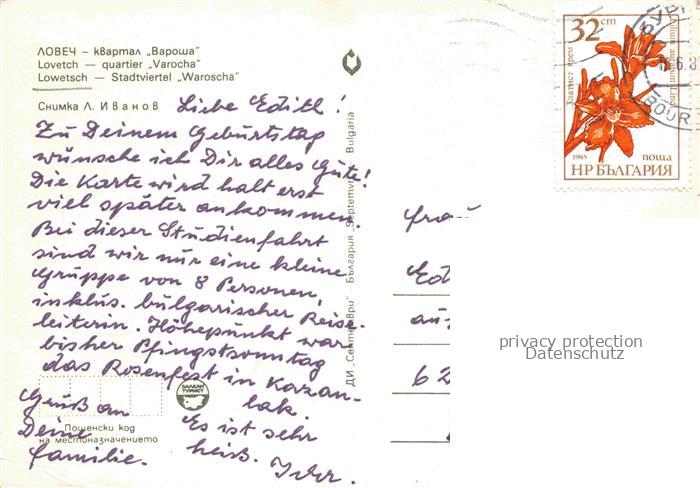 ЛОВЕЧ – квартал „Вароша"
Lovetch — quartier „Varocha"
Lowetsch — Stadtviertel „Waroscha"
Снимка Л. Иванов
Liebe Edith!
Zu Deinem Geburtstag
wünsche ich Dir alles Gute!
Die Karte wird halt erst
viel später ankommen.
Bei dieser Studienfahrt
sind wir nur eine kleine
Gruppe von 8 Personen,
inklus. bulgarischer Reise-
leiterin. Höhepunkt war
bisher Pfingstsonntag
das Rosenfest in Kazan-
lak.
Es ist sehr
heiß.
Gruß an
Deine
Familie.
Пощенски код
на местоназначението
БАЛКАН
ТУРИСТ
ДИ „Септември" България „Septemvri" Bulgaria
32 ст
Златист крем
Lilium auratum Lindl
1985
поща
НР БЪЛГАРИЯ
BOUR
Frau
Ed
au
62
privacy protection
Datenschutz